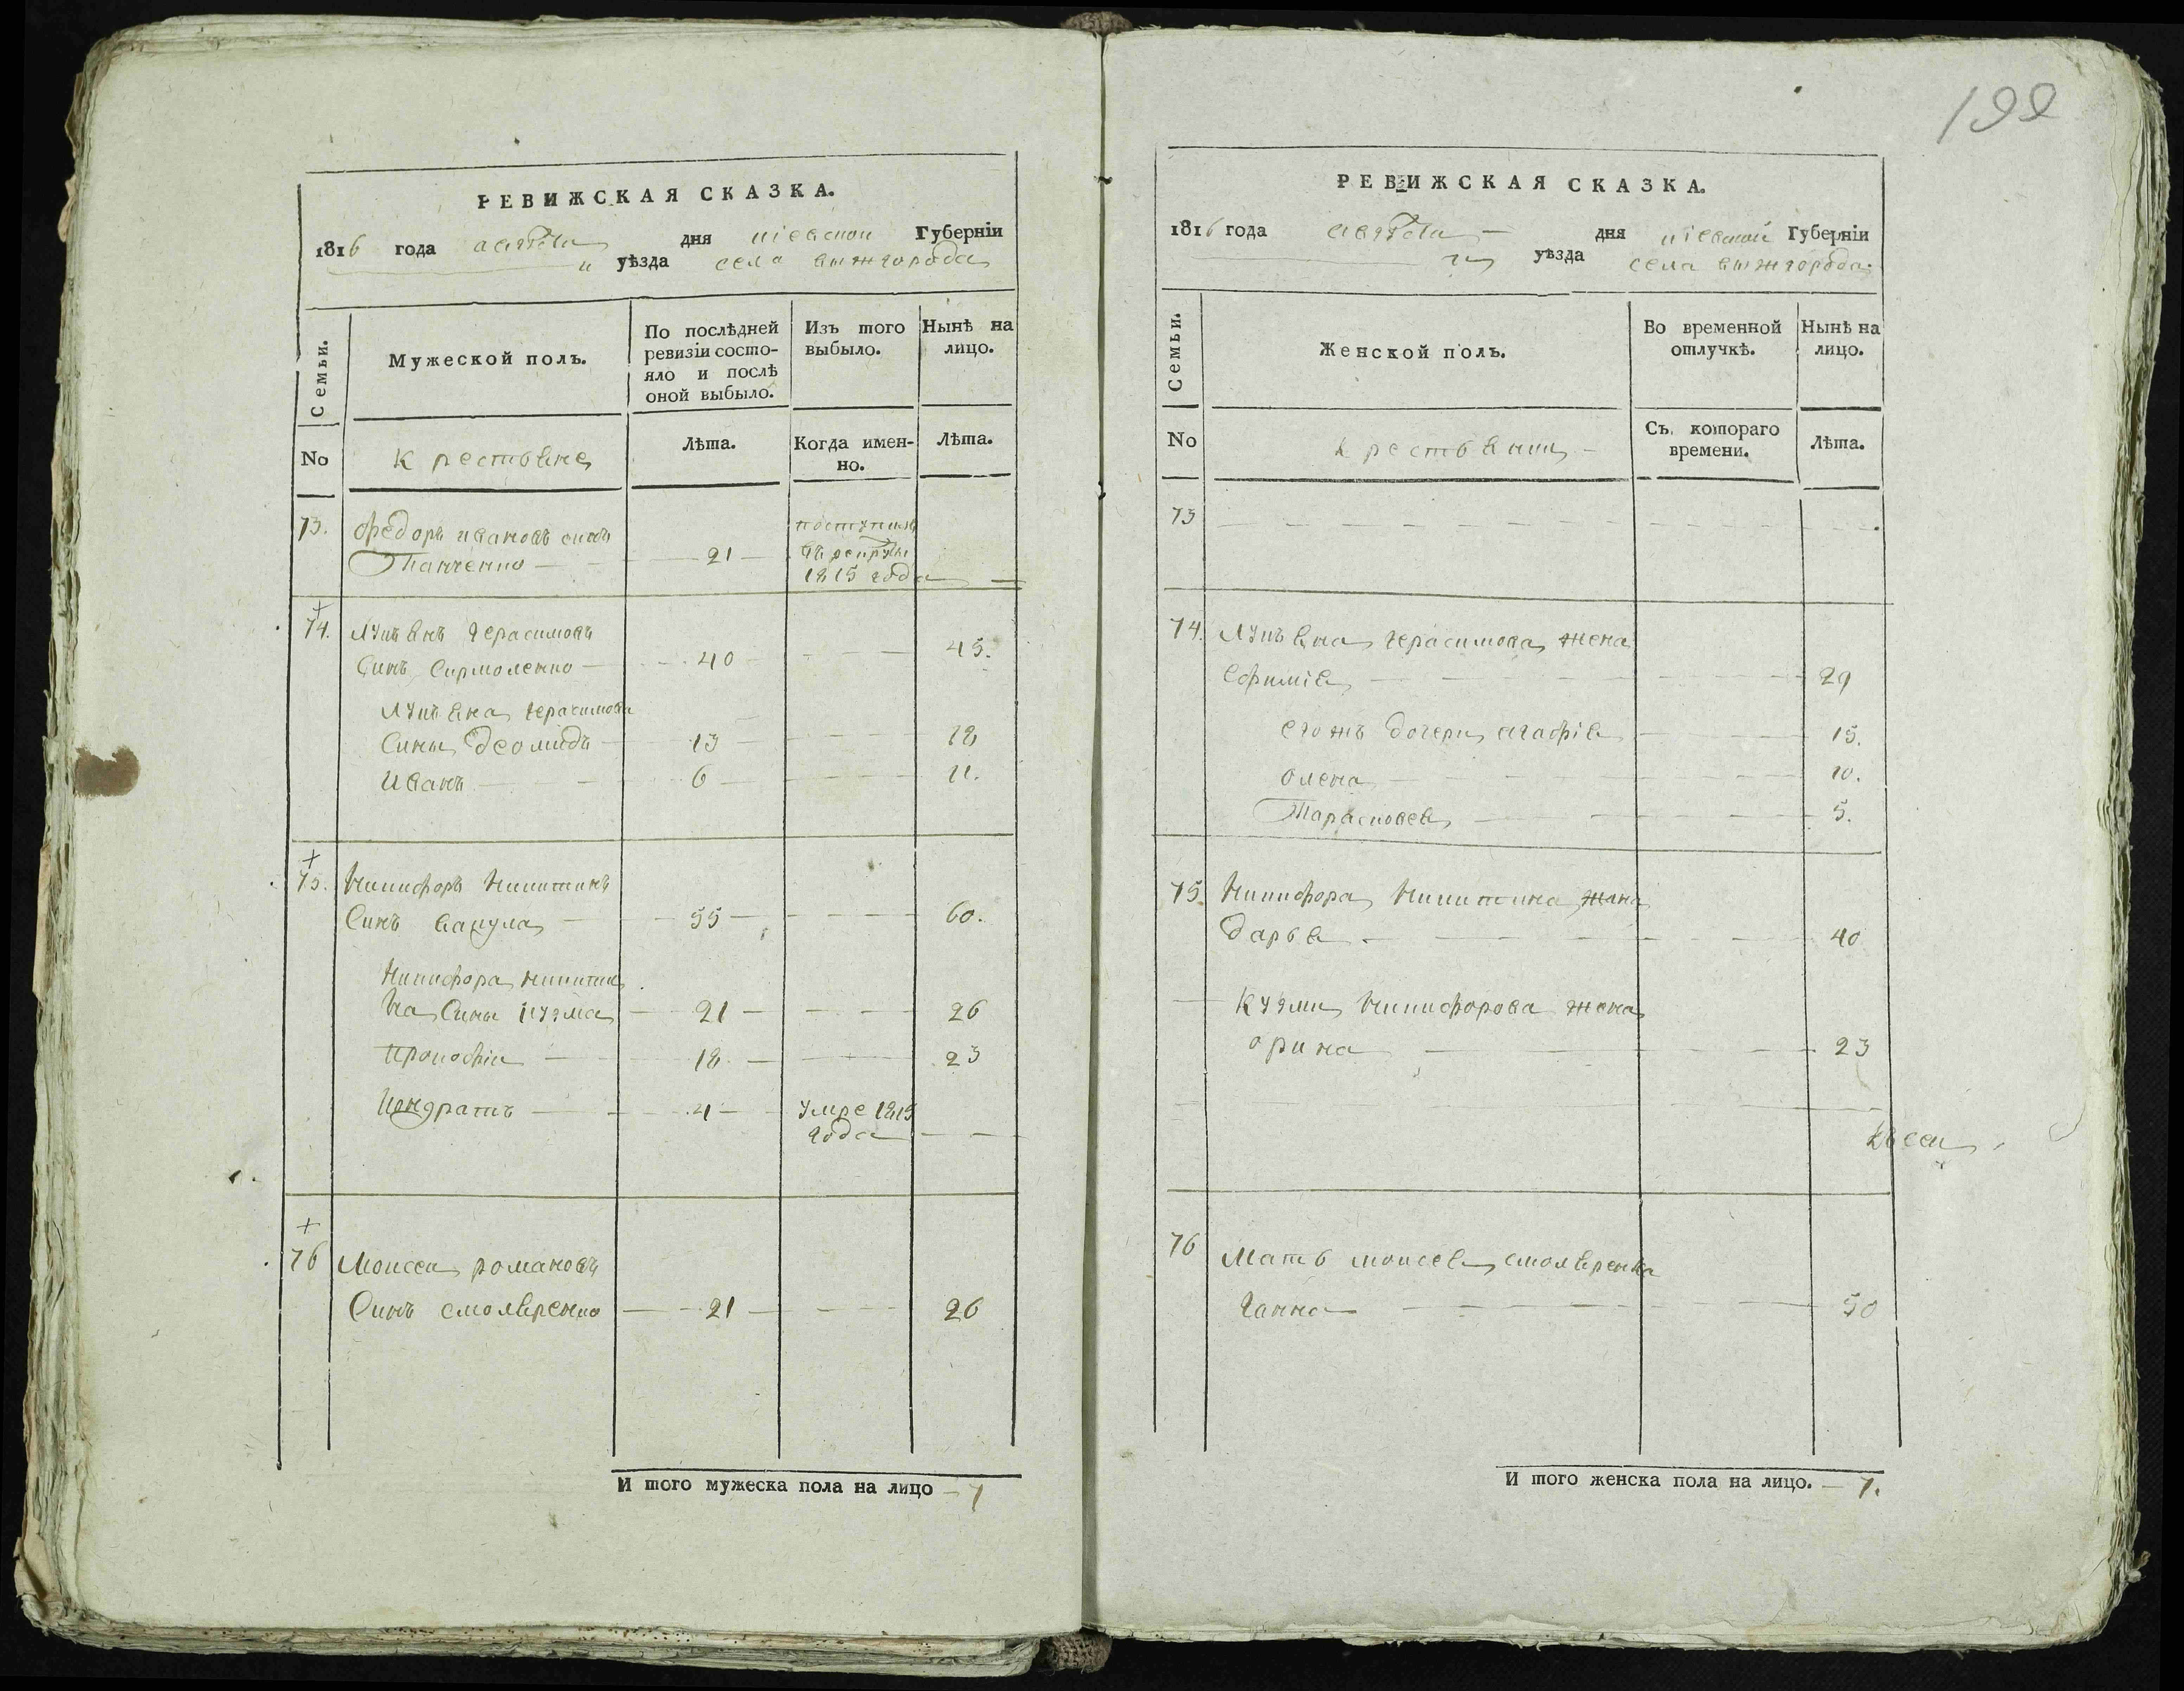 РЕВИЖСКАЯ СКАЗКА.
1816 года августа дня кіевской Губерніи
уѣзда села вижгорода
Семьи.
Мужеской полъ.
По послѣдней ревизіи состояло и послѣ оной выбыло.
Изъ того выбыло.
Нынѣ на лицо.
No
крестьяне
Лѣта.
Когда именно.
Лѣта.
73. Федоръ ивановъ синъ поступилъ
Панченко 21 въ рекруты
1815 года
74. Лукьянъ герасимовъ
Синъ Сирмоленко 40 45.
Лукьяна герасимова
Сины Деомидъ 13 18
Иванъ 6 11.
75. Никифоръ Никитинъ
Синъ вакула 55 60.
Никифора никити
на Сины кузма 21 26
Прокофіи 18 23
Кондратъ 4 умре 1815
года
76 Моисеи романовъ
Синъ смоляренко 21 26
И того мужеска пола на лицо 7
199
РЕВИЖСКАЯ СКАЗКА.
1816 года августа дня кіевской Губерніи
уѣзда села вижгорода
Семьи.
Женской полъ.
Во временной отлучкѣ.
Нынѣ на лицо.
No
крестьянки
Съ котораго времени.
Лѣта.
73
74. Лукьяна герасимова жена
Ефимія 29
егожъ дочери агафія 15.
олена 10.
Парасковея 5.
75 Никифора Никитина жена
дарья 40
Кузми Никифорова жена
орина 23
76 Мать моисея смоляренка
Ганна 50
И того женска пола на лицо. 7.